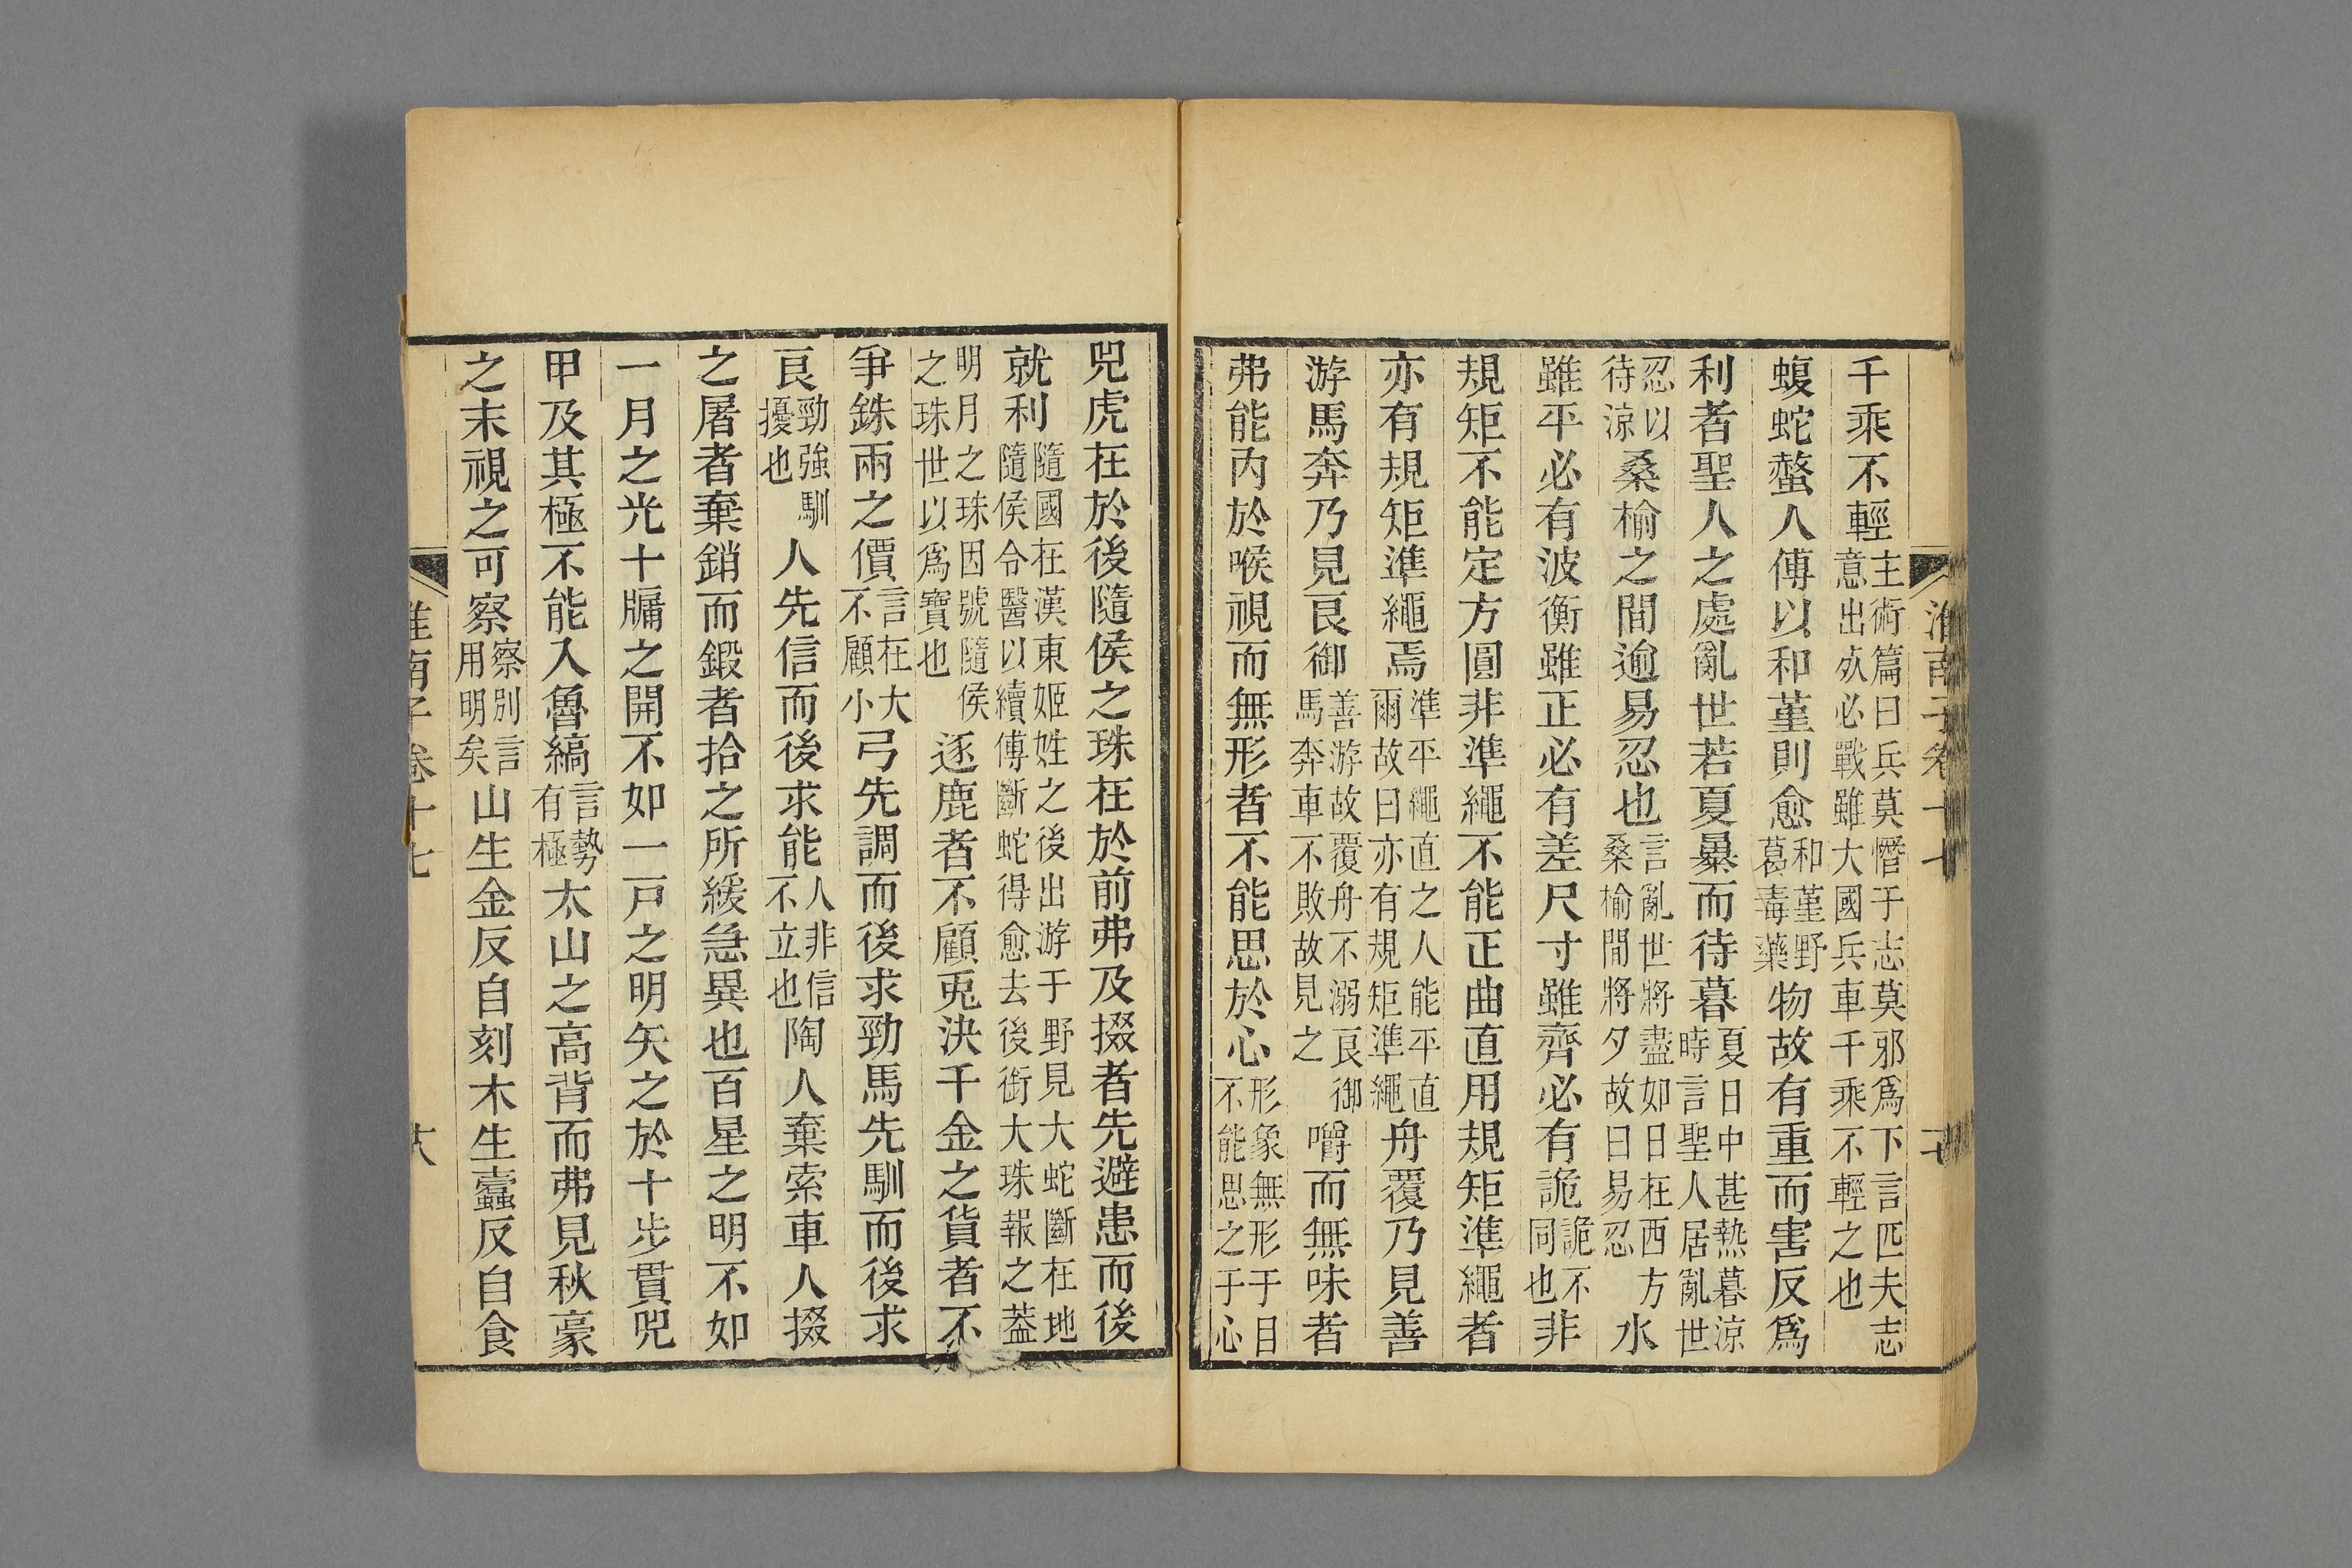 千乘不輕主術篇曰兵莫憯于志莫邪爲下言匹夫志意出
必戰雖大國兵車千乘不輕之也
蝮蛇螫人傅以和堇則愈和堇野葛毒藥物故有重而害反爲
利者聖人之處亂世若夏暴而待暮夏日中甚熱暮涼時言聖人居亂世
忍以待涼桑榆之間逾易忍也言亂世將盡如日在西方桑榆間將夕故曰易忍水
雖平必有波衡雖正必有差尺寸雖齊必有詭詭不同也非
規矩不能定方圓非準繩不能正曲直用規矩準繩者
亦有規矩準繩焉準平繩直之人能平直爾故曰亦有規矩準繩舟覆乃見善
游馬奔乃見良御善游故覆舟不溺良御馬奔車不敗故見之嚼而無味者
弗能內於喉視而無形者不能思於心形象無形于目不能思之于心
兕虎在於後隨侯之珠在於前弗及掇者先避患而後
就利隨國在漢東姬姓之後出游于野見大蛇斷在地隨侯令醫以續傅斷蛇得愈去後銜大珠報之葢
明月之珠因號隨侯之珠世以爲寶也逐鹿者不顧兎決千金之貨者不
爭銖兩之價言在大不顧小弓先調而後求勁馬先馴而後求
良勁強馴擾也人先信而後求能人非信不立也陶人棄索車人掇
之屠者棄銷而鍛者拾之所緩急異也百星之明不如
一月之光十牖之開不如一戸之明矢之於十步貫兕
甲及其極不能入魯縞言勢有極太山之高背而弗見秋豪
之末視之可察察別言用明矣山生金反自刻木生蠹反自食
淮南子卷十七